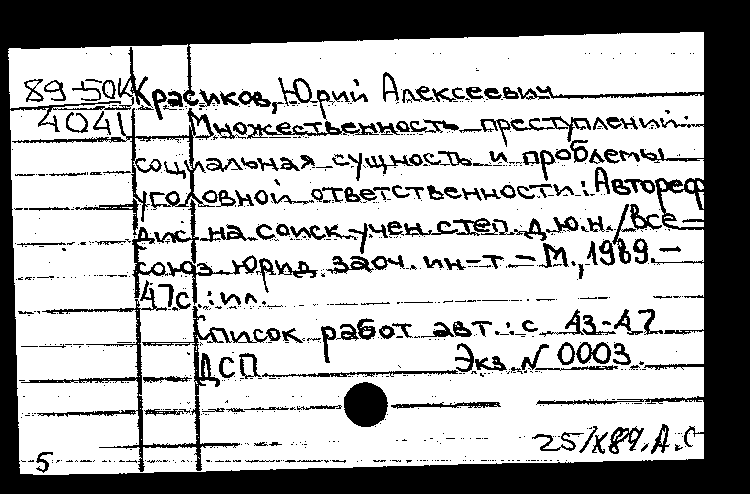 89-50к Красиков, Юрий Алексеевич
4041 Множественность преступлений:
социальная сущность и проблемы
уголовной ответственности: Автореф
дис. на соиск. учен. степ. д.ю.н. / Все-
союз. юрид. заоч. ин-т. – М., 1989. –
47с.: ил.
Список работ авт.: с 43-47
ДСП Экз. N 0003.
25/X89. А.С
5